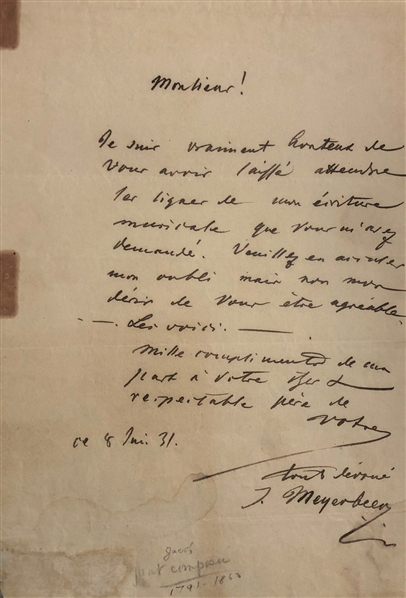 Monsieur!
Je suis vraiment honteux de
vous avoir laissé attendre
les lignes de mon écriture
musicale que vous m'avez
demandé. Veuillez en accuser
mon oubli mais non mon
désir de vous être agréable.
—. Les voici. —
Mille compliments de ma
part à votre cher &
respectable père de
votre
ce 8 31.
tout dévoué
J. Meyerbeer
Jacob
1791-1863